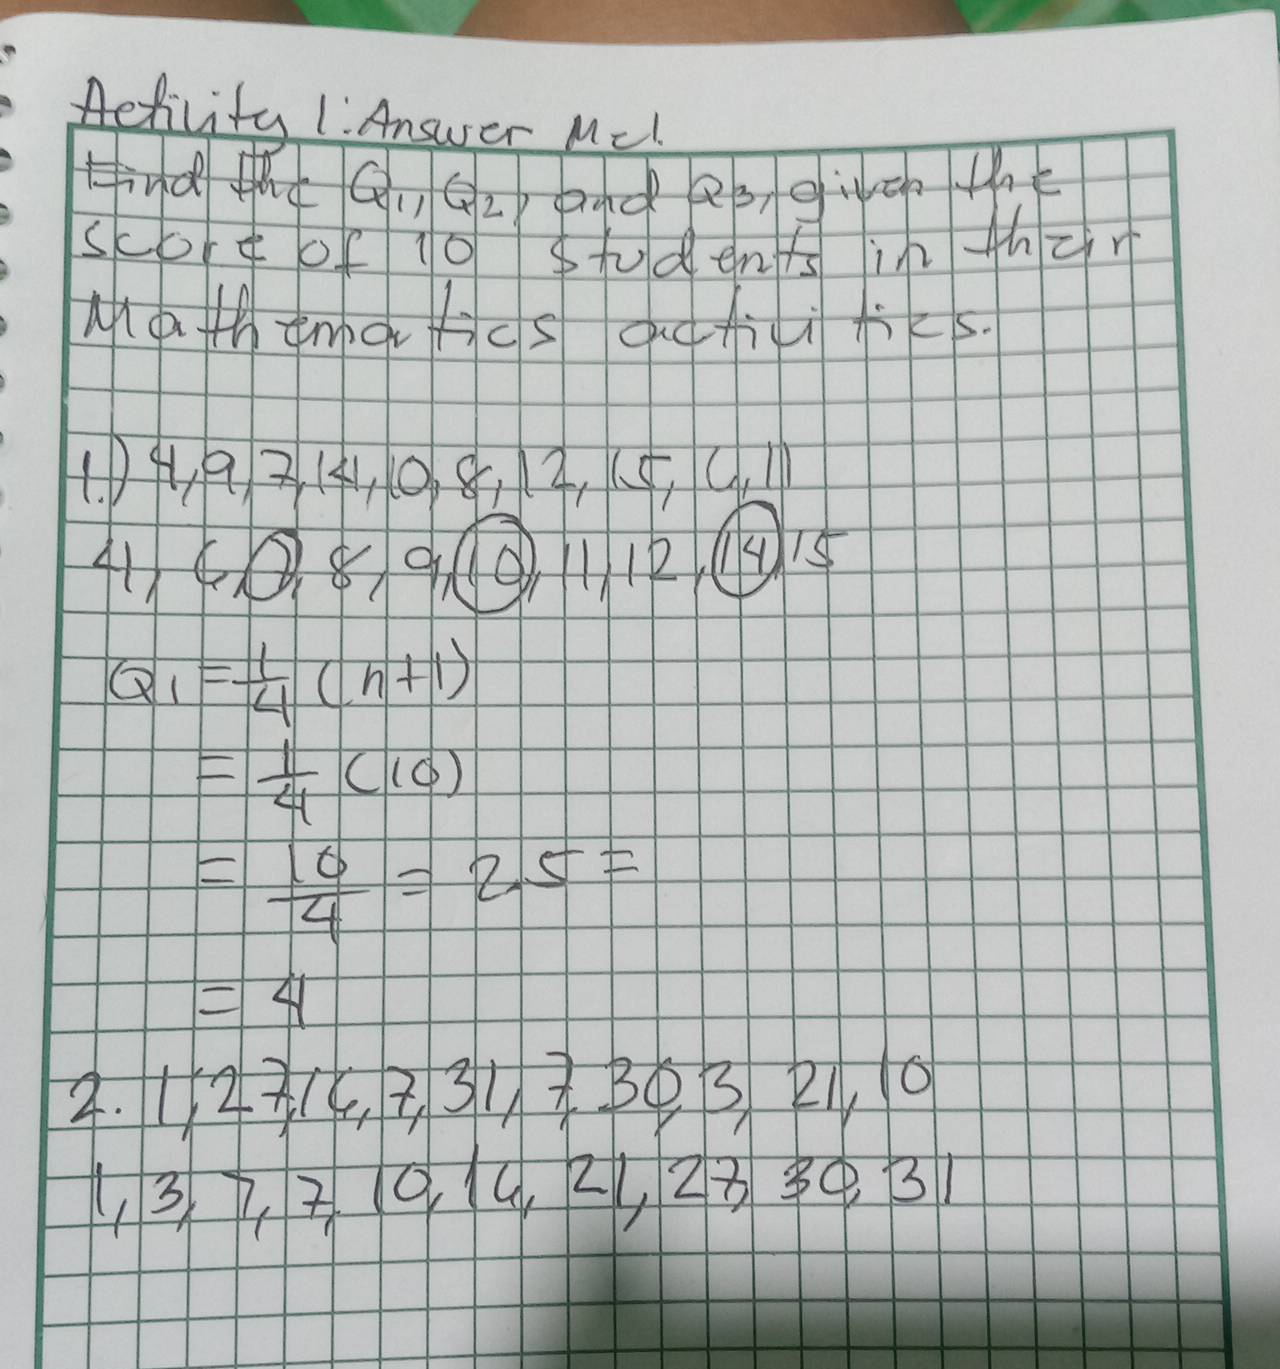 Activity 1: Answer Me!
Find the Q1, Q2, and Q3, given the
score of 10 students in their
Mathematics activities.
1.) 4, 9, 7, 14, 10, 8, 12, 15, 6, 11
4, 6, 7, 8, 9, 10, 11, 12, 14, 15
Q1 = 1/4 (n+1)
= 1/4 (10)
= 10/4 = 2.5 =
= 4
2. 1, 27, 16, 7, 31, 7, 30, 3, 21, 10
1, 3, 7, 7, 10, 16, 21, 27, 30, 31